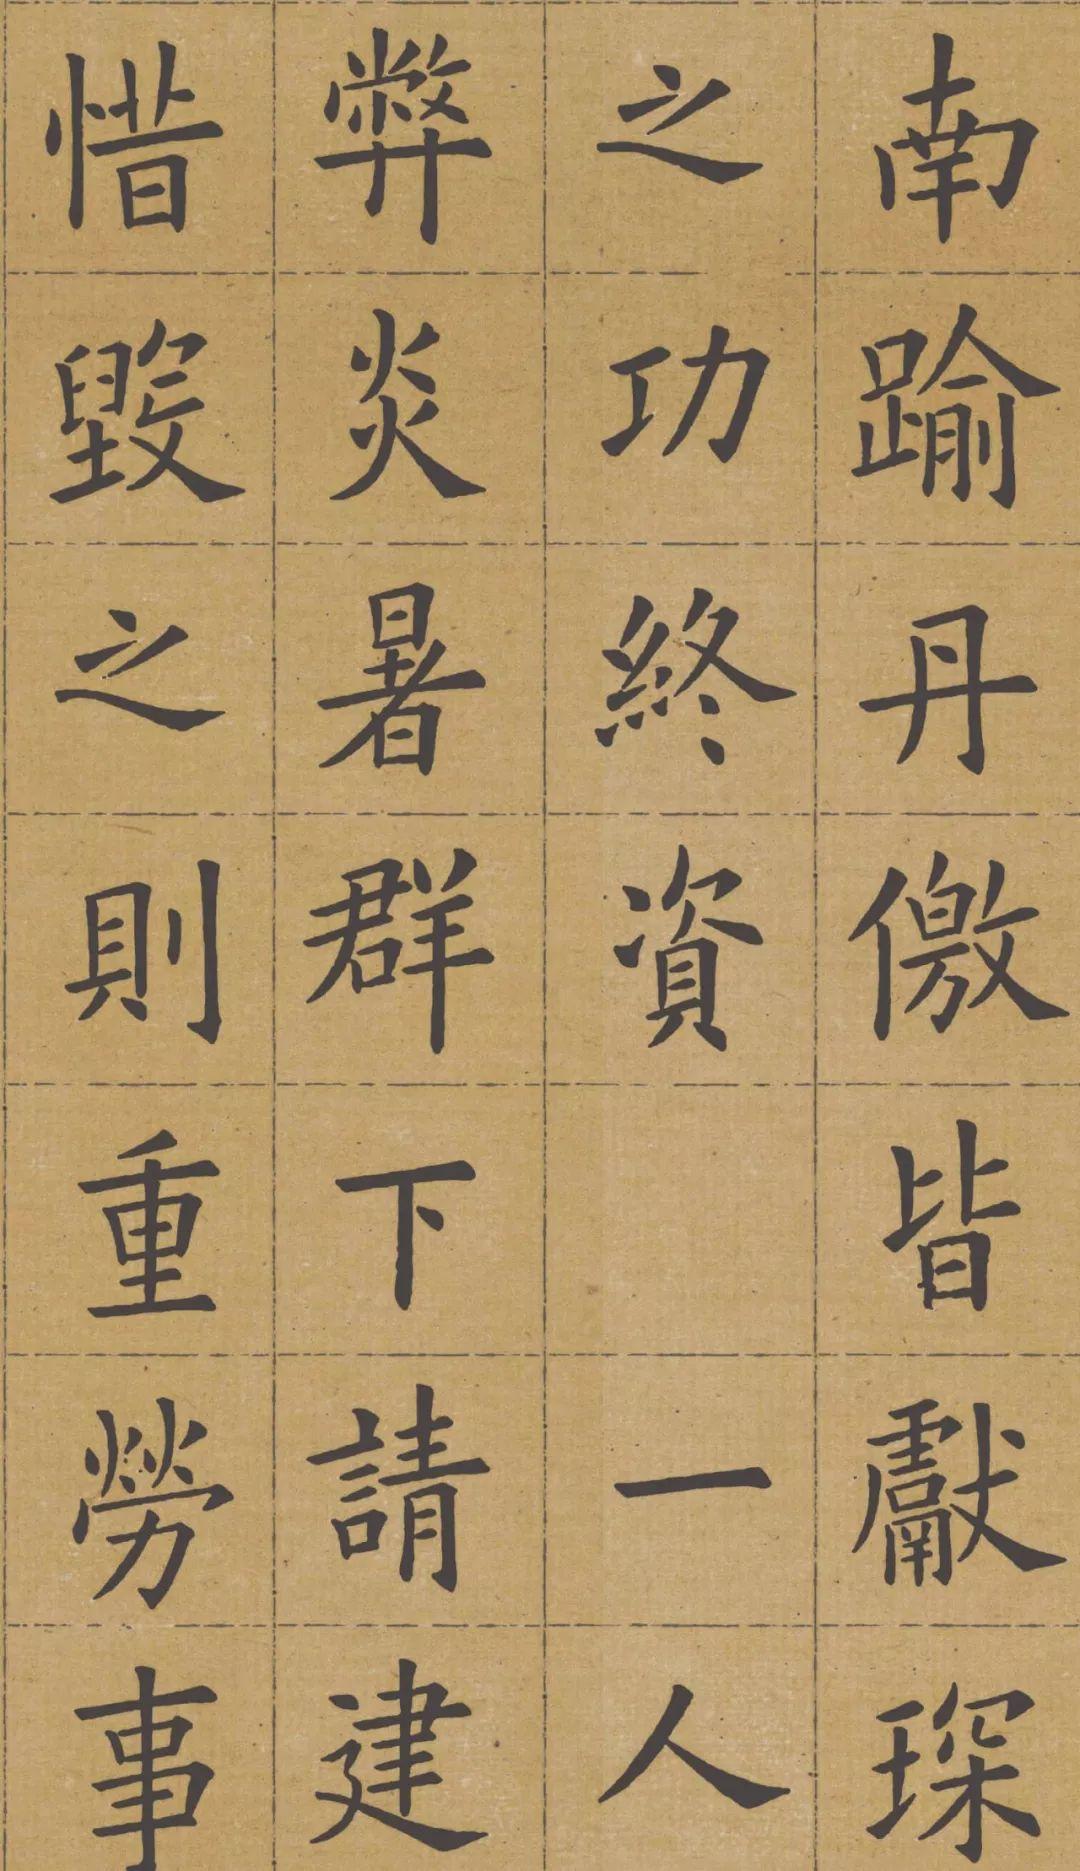 南踰丹儌皆獻琛
之功終資一人
弊炎暑群下請建
惜毀之則重勞事